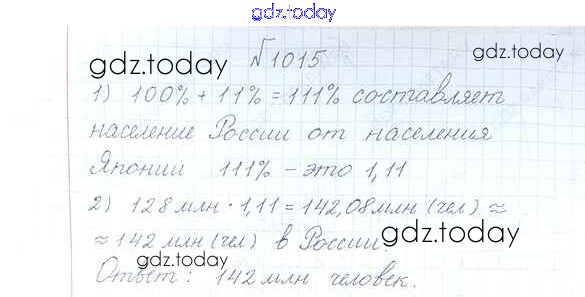 gdz.today
gdz.today №1015 gdz.today
1) 100% + 11% = 111% составляет
население России от населения
Японии 111% - это 1,11
2) 128 млн · 1,11 = 142,08 млн (чел) ≈
≈ 142 млн (чел) в России. gdz.today
gdz.today
Ответ: 142 млн человек.